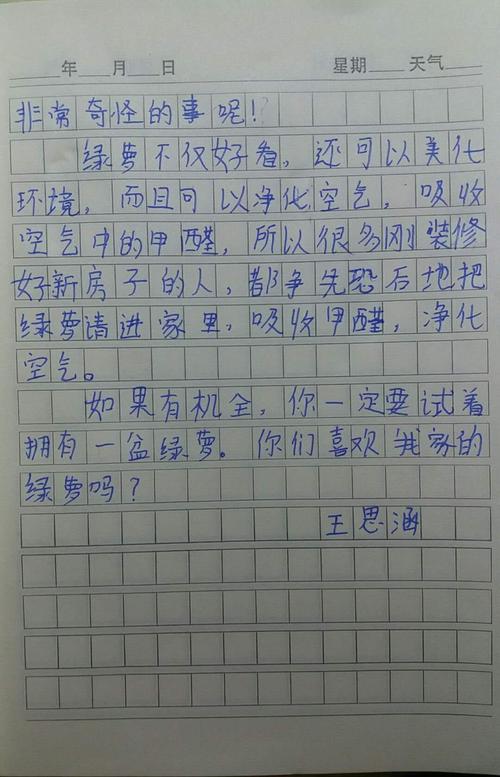 年 月 日 星期 天气
非常奇怪的事呢!?
绿萝不仅好看，还可以美化
环境，而且可以净化空气，吸收
空气中的甲醛，所以很多刚装修
好新房子的人，都争先恐后地把
绿萝请进家里，吸收甲醛，净化
空气。
如果有机会，你一定要试着
拥有一盆绿萝。你们喜欢我家的
绿萝吗？
王思涵